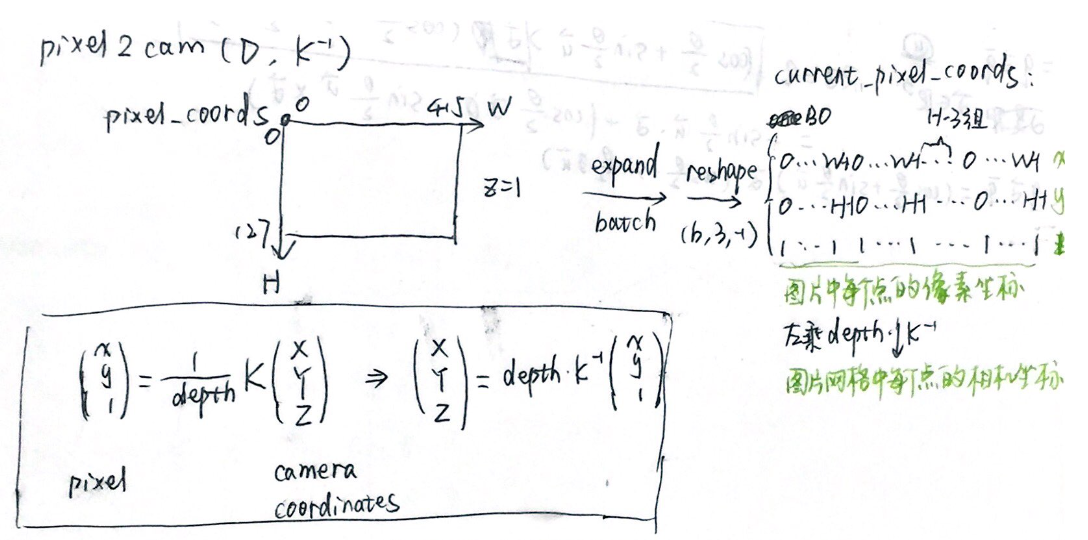 pixel2cam (D, K⁻¹)
pixel_coords
0
0
415 W
127
H
z=1
expand
batch
reshape
(b,3,-1)
current_pixel_coords:
B0
H-3组
0 ... W-1 0 ... W-1 ... 0 ... W-1 x
0 ... H-1 0 ... H-1 ... 0 ... H-1 y
1 ... 1 1 ... 1 ... 1 ... 1 1
图片中每个点的像素坐标
左乘depth·K⁻¹
图片网格中每个点的相机坐标
(x y 1) = 1/depth K (X Y Z) ⇒ (X Y Z) = depth·K⁻¹ (x y 1)
pixel
camera
coordinates